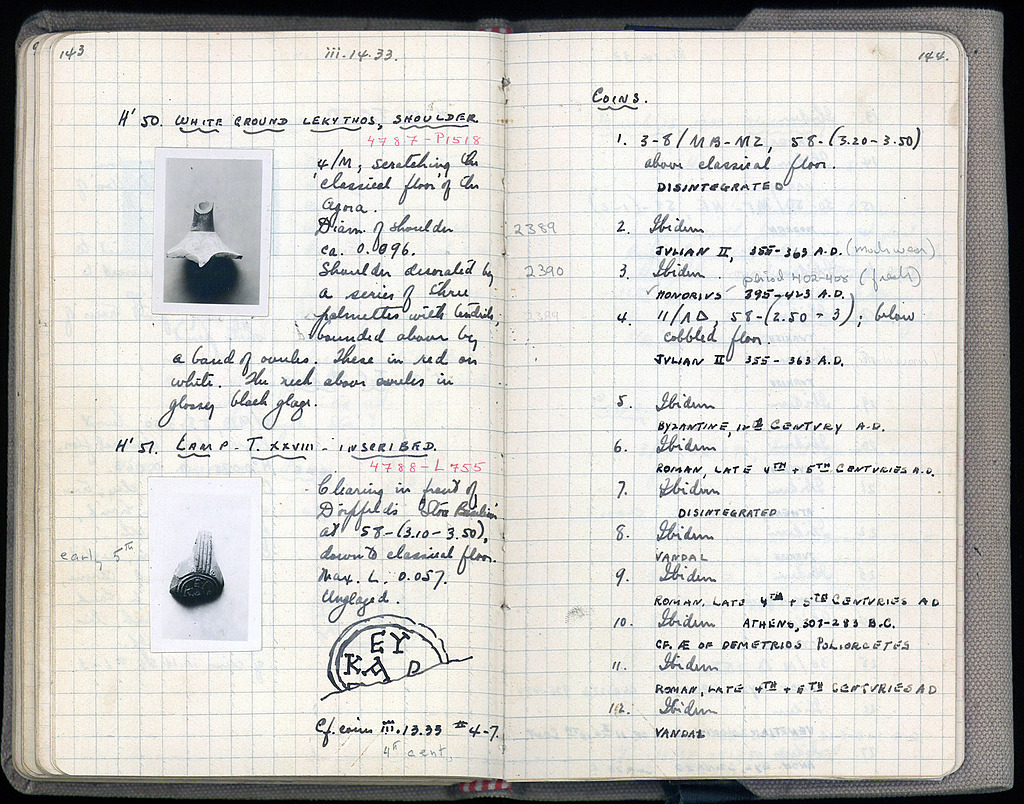 143
iii.14.33.
H' 50. WHITE GROUND LEKYTHOS, SHOULDER
4787-P1518
4/M, scratching the
'classical floor' of the
Agora.
Diam. of shoulder
ca. 0.096.
Shoulder decorated by
a series of three
palmettes with tendrils,
bounded above by
a band of ovules. These in red on
white. The neck above ovules in
glossy black glaze.
H' 51. LAMP - T. XXVIII - INSCRIBED.
4788-L755
Clearing in front of
Dörpfeld's 'Stoa Basileios'
at 58-(3.10-3.50),
down to classical floor.
Max. L. 0.057.
Unglazed.
early 5th
EY
KAP
Cf. coins iii.13.33 #4-7.
4th cent.
144.
COINS.
1. 3-8/MB-MZ, 58-(3.20-3.50)
above classical floor.
DISINTEGRATED
2389 2. Ibidem
JULIAN II, 355-363 A.D. (much wear)
2390 3. Ibidem. period 402-408 (fresh)
✓ HONORIUS ✓ 395-423 A.D.
2389 4. 11/ΛΔ, 58-(2.50-3); below
cobbled floor.
JULIAN II 355-363 A.D.
5. Ibidem
BYZANTINE, 12th CENTURY A.D.
6. Ibidem
ROMAN, LATE 4TH + 5TH CENTURIES A.D.
7. Ibidem
DISINTEGRATED
8. Ibidem
VANDAL
9. Ibidem
ROMAN, LATE 4TH + 5TH CENTURIES AD
10. Ibidem ATHENS, 307-283 B.C.
CF. Æ OF DEMETRIOS POLIORCETES
11. Ibidem
ROMAN, LATE 4TH + 5TH CENTURIES AD
12. Ibidem
VANDAL